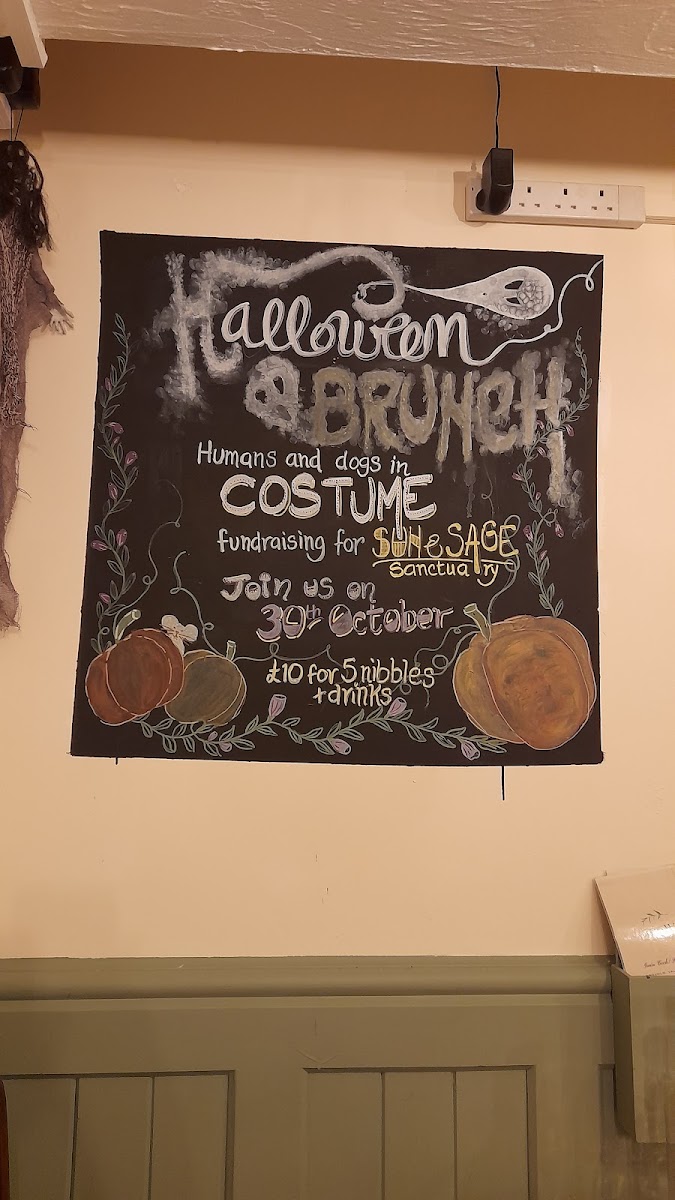 Halloween
BRUNCH
Humans and dogs in
COSTUME
fundraising for SUN & SAGE
Sanctuary
Join us on
30th October
£10 for 5 nibbles
+ drinks